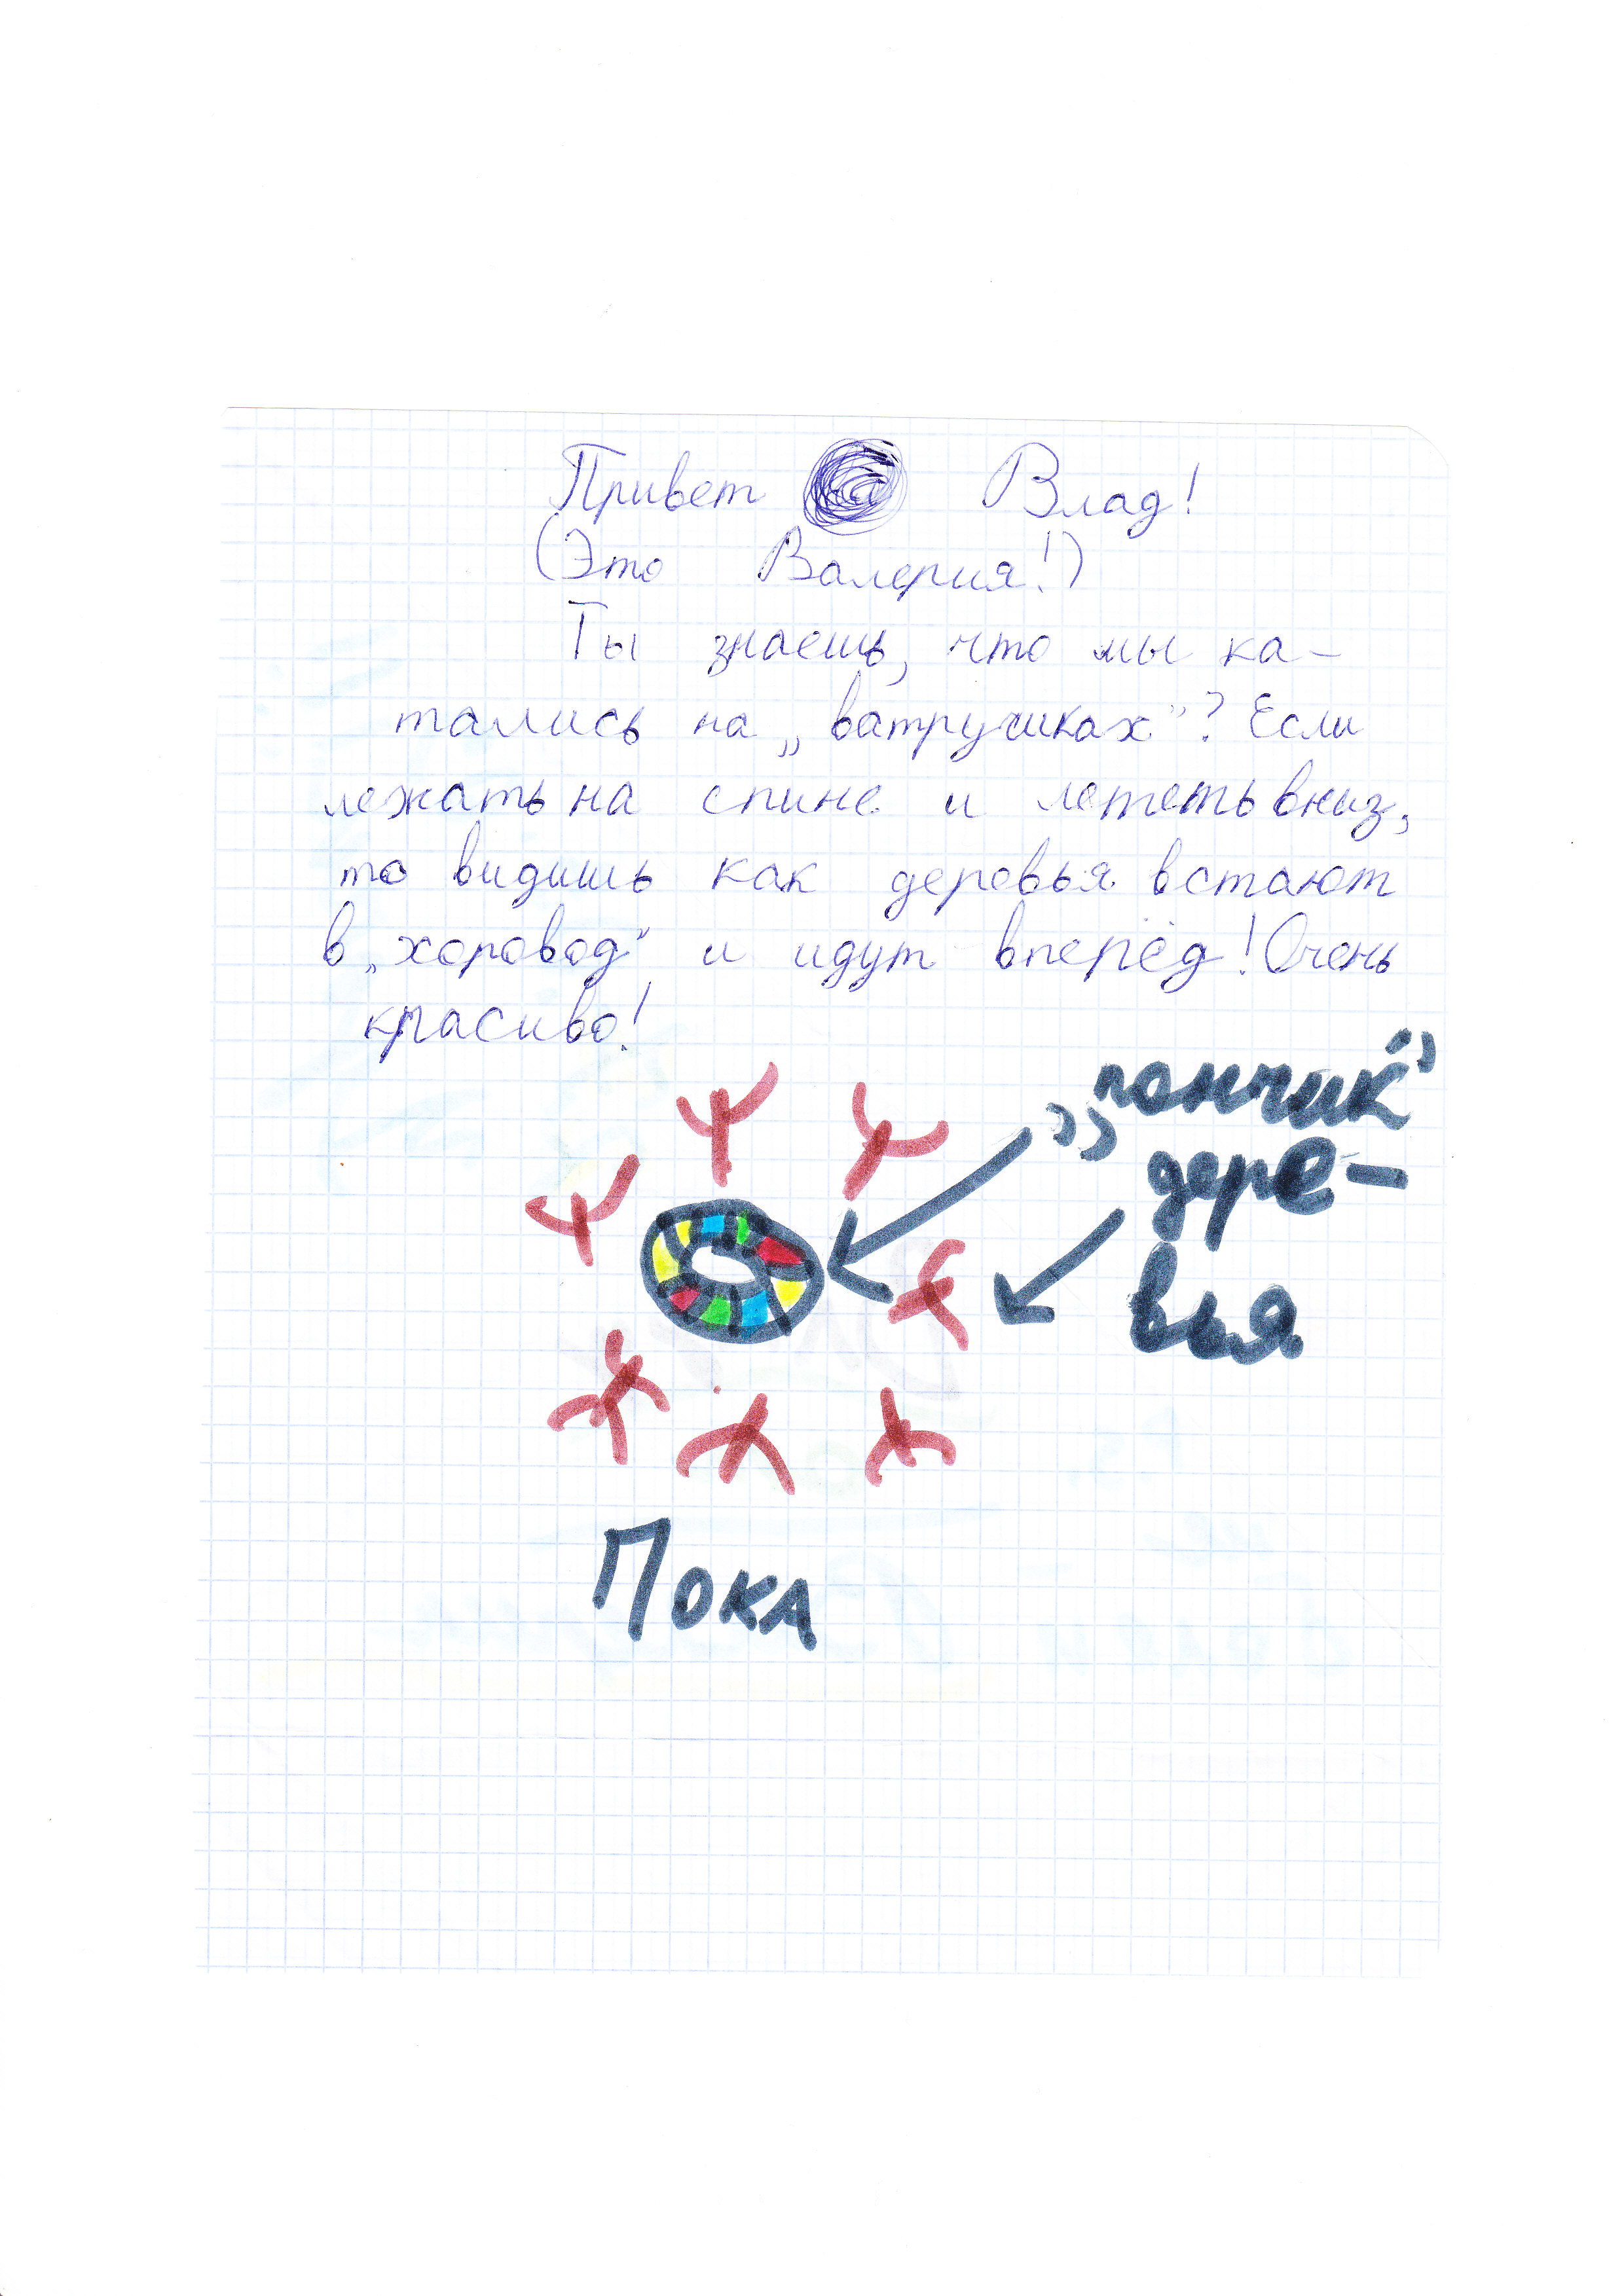 Привет Влад!
(Это Валерия!)
Ты знаешь, что мы ка-
тались на „ватрушках"? Если
лежать на спине и лететь вниз,
то видишь как деревья встают
в „хоровод" и идут вперёд! Очень
красиво!
„пончик"
дере-
вья
Пока